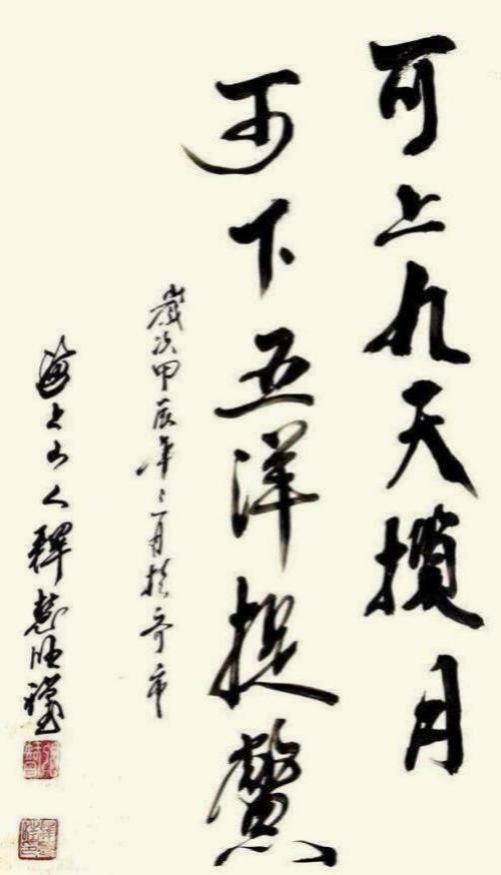 可上九天攬月
可下五洋捉鱉
歲次甲辰年二月於齊市
海上山人釋慧